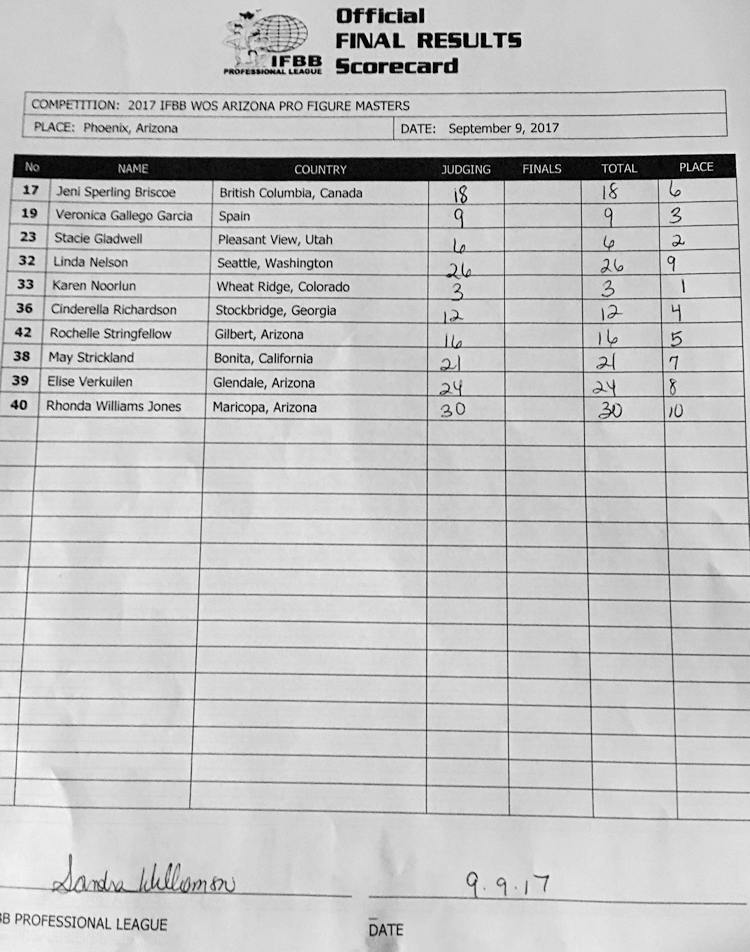 Official
FINAL RESULTS
Scorecard
IFBB
PROFESSIONAL LEAGUE
COMPETITION: 2017 IFBB WOS ARIZONA PRO FIGURE MASTERS
PLACE: Phoenix, Arizona DATE: September 9, 2017
No NAME COUNTRY JUDGING FINALS TOTAL PLACE
17 Jeni Sperling Briscoe British Columbia, Canada 18 18 6
19 Veronica Gallego Garcia Spain 9 9 3
23 Stacie Gladwell Pleasant View, Utah 6 6 2
32 Linda Nelson Seattle, Washington 26 26 9
33 Karen Noorlun Wheat Ridge, Colorado 3 3 1
36 Cinderella Richardson Stockbridge, Georgia 12 12 4
42 Rochelle Stringfellow Gilbert, Arizona 16 16 5
38 May Strickland Bonita, California 21 21 7
39 Elise Verkuilen Glendale, Arizona 24 24 8
40 Rhonda Williams Jones Maricopa, Arizona 30 30 10
Sandra Williamson 9.9.17
BB PROFESSIONAL LEAGUE DATE